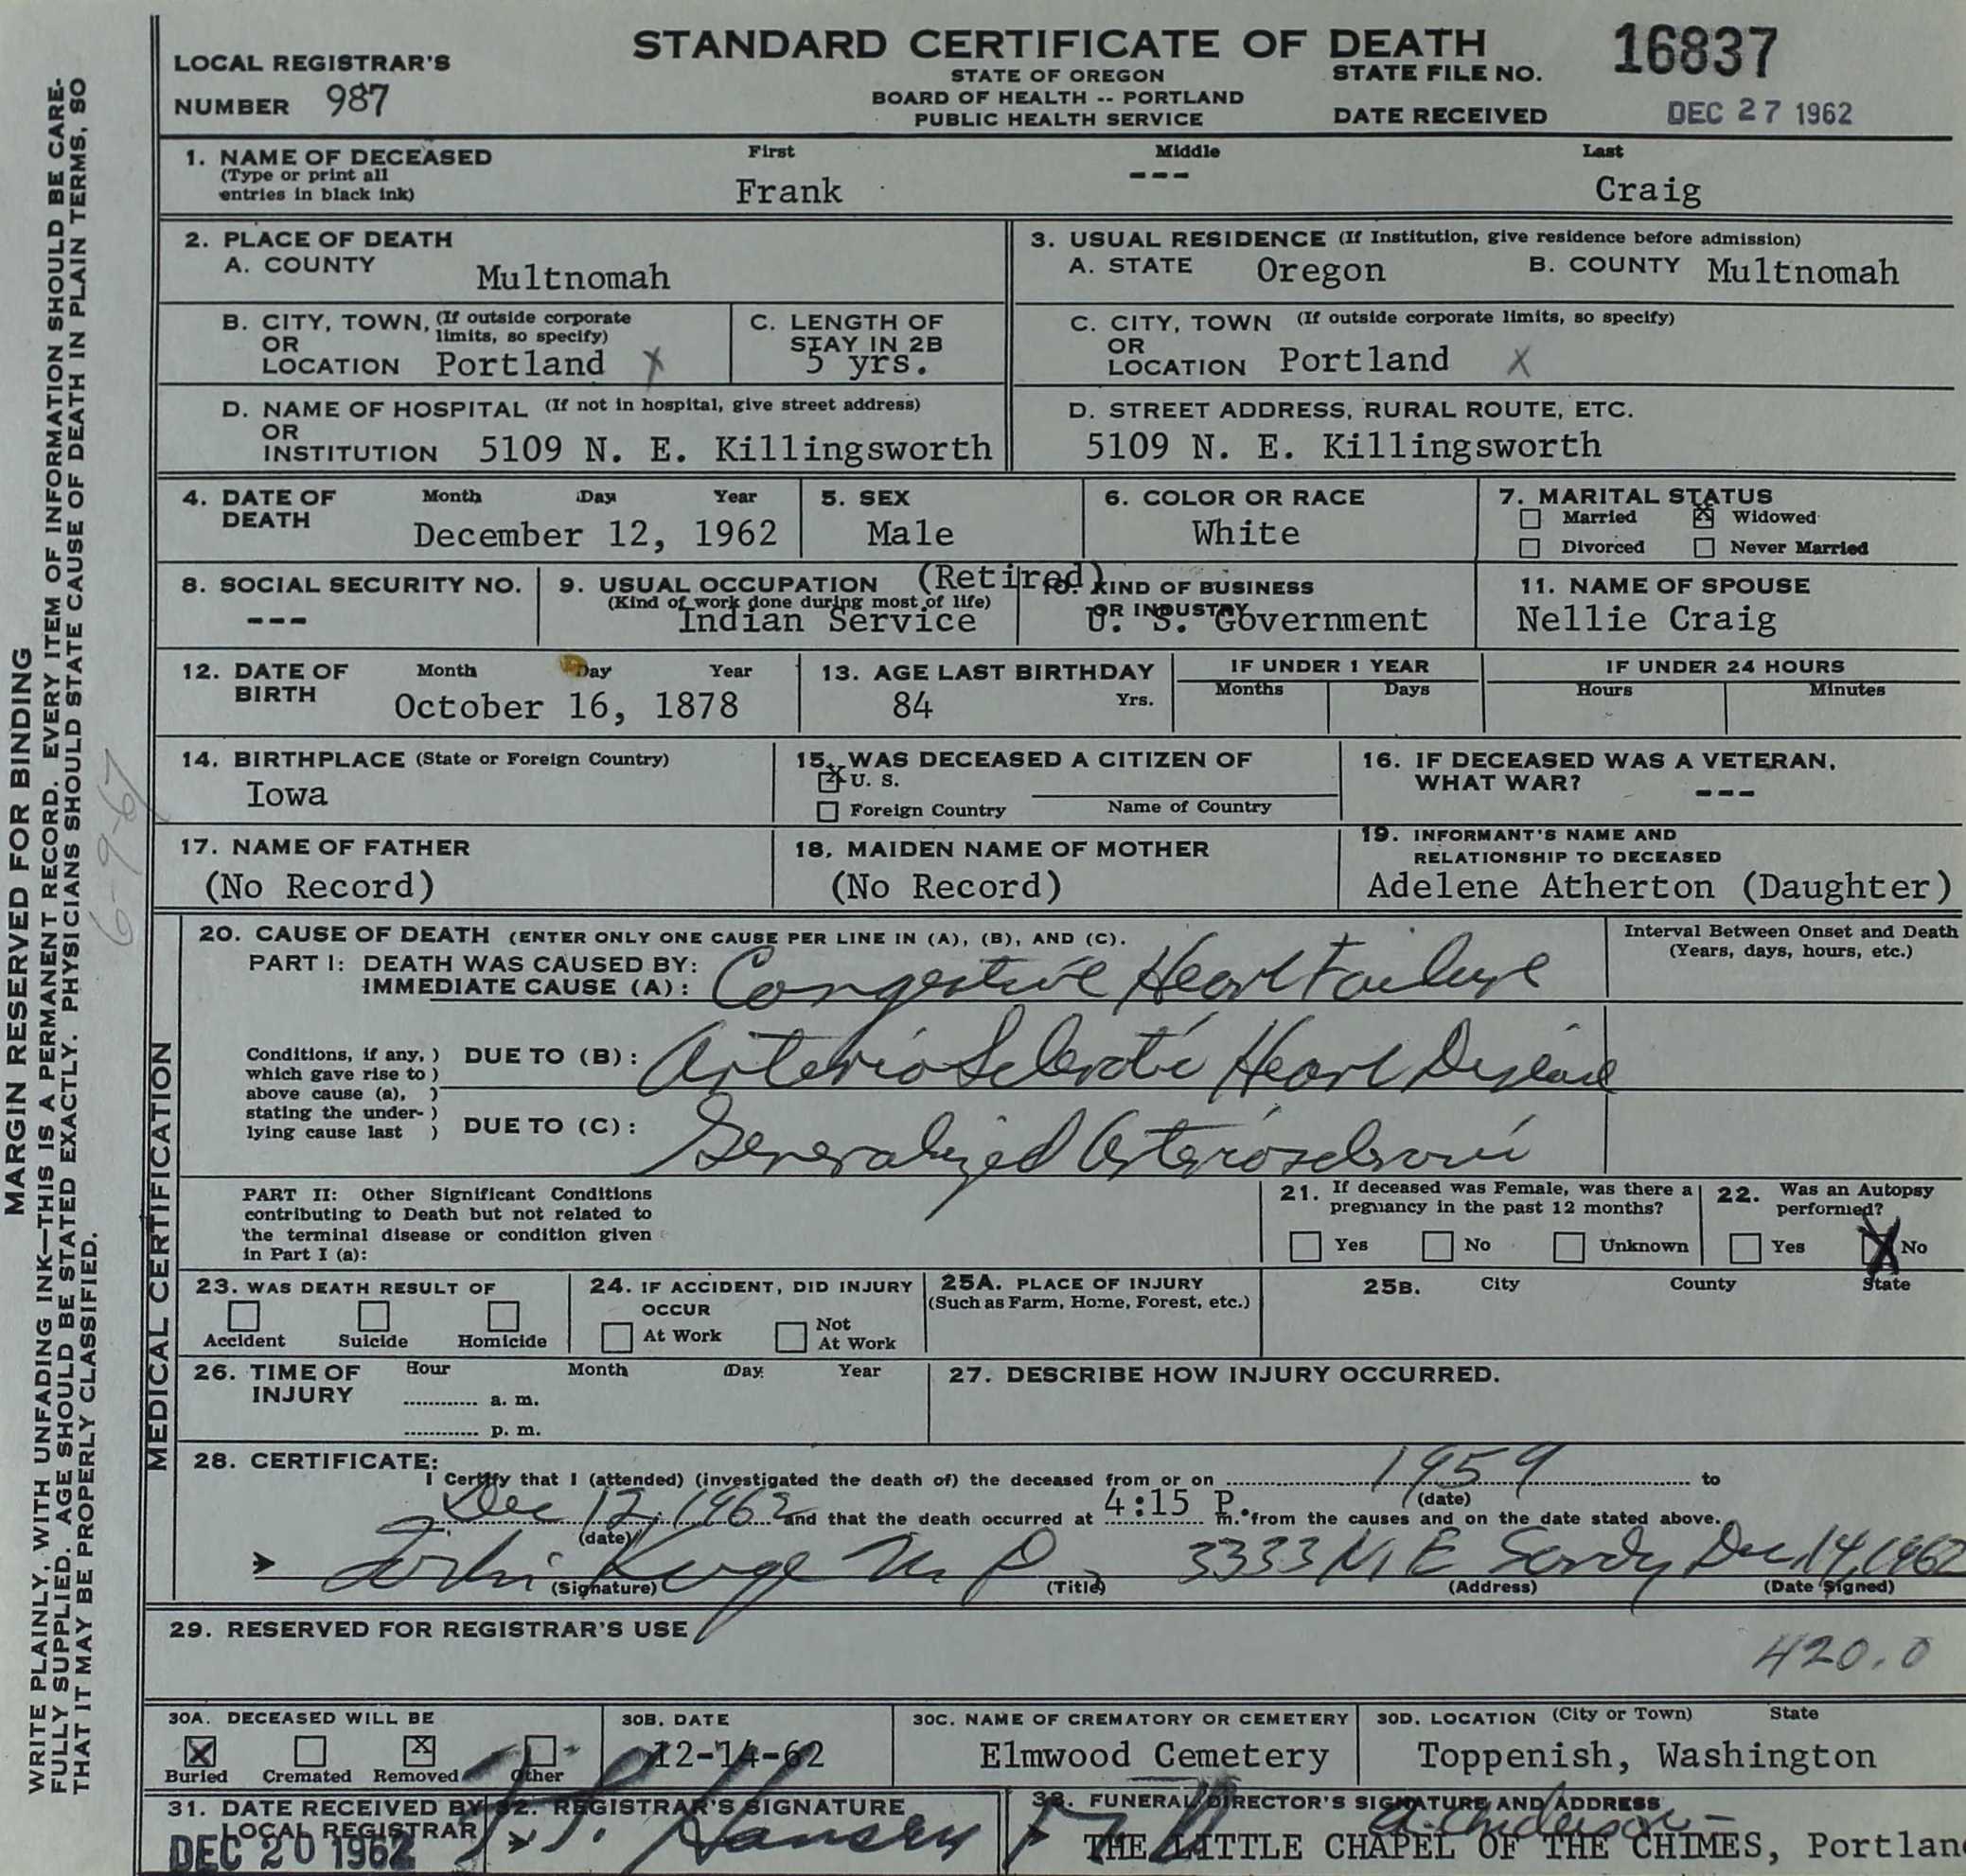 STANDARD CERTIFICATE OF DEATH
STATE OF OREGON
BOARD OF HEALTH -- PORTLAND
PUBLIC HEALTH SERVICE
LOCAL REGISTRAR'S
NUMBER 987
STATE FILE NO. 16837
DATE RECEIVED DEC 27 1962
1. NAME OF DECEASED
(Type or print all
entries in black ink)
First Middle Last
Frank --- Craig
2. PLACE OF DEATH
A. COUNTY Multnomah
3. USUAL RESIDENCE (If Institution, give residence before admission)
A. STATE Oregon B. COUNTY Multnomah
B. CITY, TOWN, (If outside corporate
OR limits, so specify)
LOCATION Portland X
C. LENGTH OF
STAY IN 2B
5 yrs.
C. CITY, TOWN (If outside corporate limits, so specify)
OR
LOCATION Portland X
D. NAME OF HOSPITAL (If not in hospital, give street address)
OR
INSTITUTION 5109 N. E. Killingsworth
D. STREET ADDRESS, RURAL ROUTE, ETC.
5109 N. E. Killingsworth
4. DATE OF Month Day Year
DEATH December 12, 1962
5. SEX
Male
6. COLOR OR RACE
White
7. MARITAL STATUS
Married X Widowed
Divorced Never Married
8. SOCIAL SECURITY NO.
---
9. USUAL OCCUPATION (Retired)
(Kind of work done during most of life)
Indian Service
10. KIND OF BUSINESS
OR INDUSTRY
U. S. Government
11. NAME OF SPOUSE
Nellie Craig
12. DATE OF Month Day Year
BIRTH October 16, 1878
13. AGE LAST BIRTHDAY
84 Yrs.
IF UNDER 1 YEAR
Months Days
IF UNDER 24 HOURS
Hours Minutes
14. BIRTHPLACE (State or Foreign Country)
Iowa
15. WAS DECEASED A CITIZEN OF
X U. S.
Foreign Country Name of Country
16. IF DECEASED WAS A VETERAN,
WHAT WAR? ---
17. NAME OF FATHER
(No Record)
18. MAIDEN NAME OF MOTHER
(No Record)
19. INFORMANT'S NAME AND
RELATIONSHIP TO DECEASED
Adelene Atherton (Daughter)
20. CAUSE OF DEATH (ENTER ONLY ONE CAUSE PER LINE IN (A), (B), AND (C).
Interval Between Onset and Death
(Years, days, hours, etc.)
PART I: DEATH WAS CAUSED BY:
IMMEDIATE CAUSE (A): Congestive Heart Failure
Conditions, if any, )
which gave rise to )
above cause (a), )
stating the under- )
lying cause last )
DUE TO (B): Arterio Sclerotic Heart Disease
DUE TO (C): Generalized Arteriosclerosis
PART II: Other Significant Conditions
contributing to Death but not related to
the terminal disease or condition given
in Part I (a):
21. If deceased was Female, was there a
pregnancy in the past 12 months?
Yes No Unknown
22. Was an Autopsy
performed?
Yes X No
23. WAS DEATH RESULT OF
Accident Suicide Homicide
24. IF ACCIDENT, DID INJURY
OCCUR
At Work Not
At Work
25A. PLACE OF INJURY
(Such as Farm, Home, Forest, etc.)
25B. City County State
26. TIME OF Hour Month Day Year
INJURY
............ a. m.
............ p. m.
27. DESCRIBE HOW INJURY OCCURRED.
28. CERTIFICATE:
I Certify that I (attended) (investigated the death of) the deceased from or on 1959 to
(date)
Dec 12, 1962 and that the death occurred at 4:15 P. m. from the causes and on the date stated above.
(date)
M D 3333 N E Sandy Dec 14, 1962
(Signature) (Title) (Address) (Date Signed)
29. RESERVED FOR REGISTRAR'S USE
420.0
30A. DECEASED WILL BE
X X
Buried Cremated Removed Other
30B. DATE
12-14-62
30C. NAME OF CREMATORY OR CEMETERY
Elmwood Cemetery
30D. LOCATION (City or Town) State
Toppenish, Washington
31. DATE RECEIVED BY
LOCAL REGISTRAR
DEC 20 1962
32. REGISTRAR'S SIGNATURE
Hansen
33. FUNERAL DIRECTOR'S SIGNATURE AND ADDRESS
A. Anderson
THE LITTLE CHAPEL OF THE CHIMES, Portlan
MEDICAL CERTIFICATION
MARGIN RESERVED FOR BINDING
WRITE PLAINLY, WITH UNFADING INK—THIS IS A PERMANENT RECORD. EVERY ITEM OF INFORMATION SHOULD BE CARE-
FULLY SUPPLIED. AGE SHOULD BE STATED EXACTLY. PHYSICIANS SHOULD STATE CAUSE OF DEATH IN PLAIN TERMS, SO
THAT IT MAY BE PROPERLY CLASSIFIED.
6-9-67